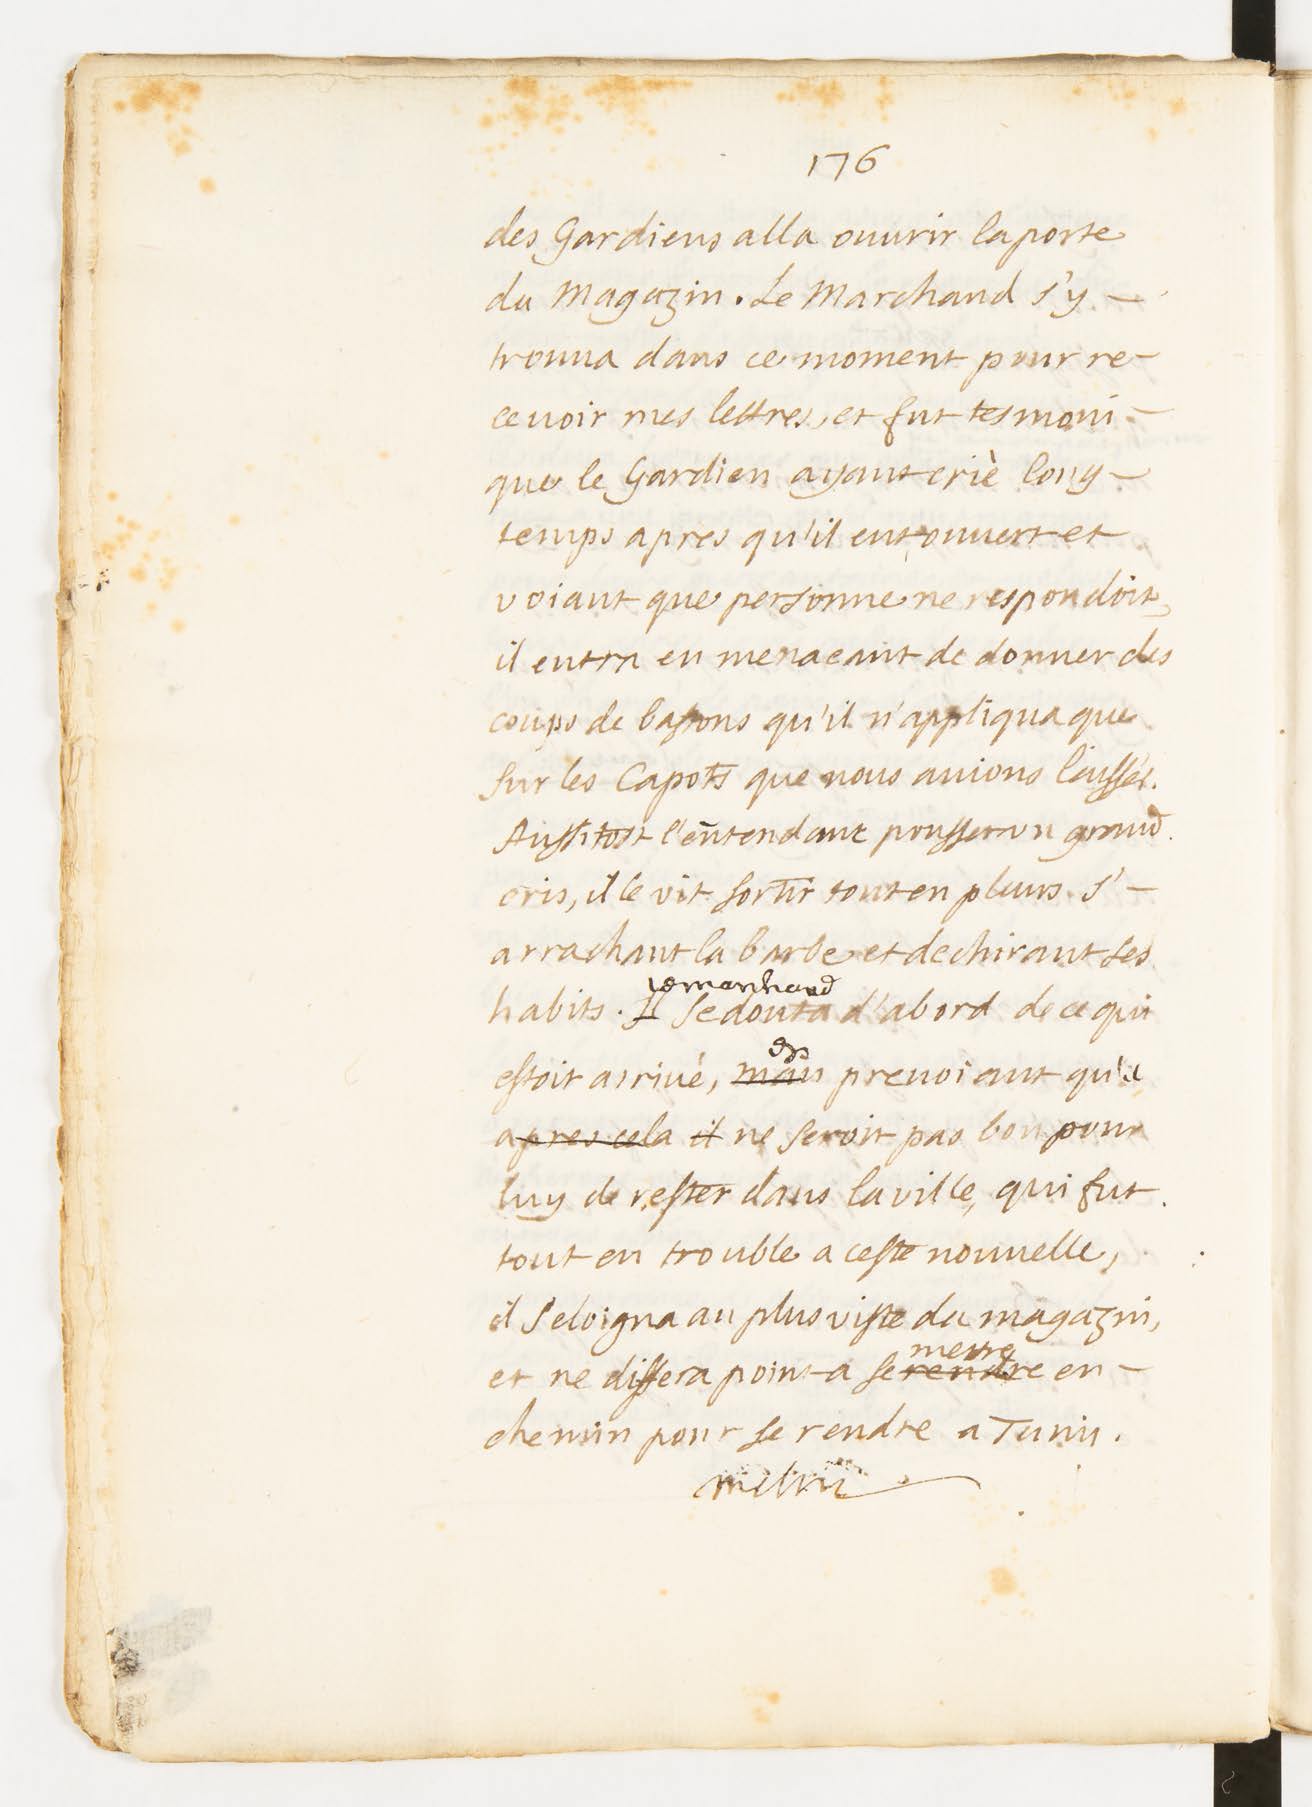 176
des Gardiens alla ouurir la porte
du Magazin. Le Marchand s'y -
trouua dans ce moment pour re-
ceuoir mes lettres, et fut tesmoin -
que le Gardien ayant criè long -
temps apres qu'il eut ouuert et
voiant que personne ne respondoit,
il entra en menaeant de donner des
coups de bastons qu'il n'appliqua que
sur les Capots que nous auions laissés.
Aussitost l'entendant pousser un grand
cris, il le vit sortir tout en pleurs s'-
arrachant la barbe et dechirant ses
le marchand
habits. Il se douta d'abord de ce qui
et
estoit arriué, mais preuoiant qu'il
apres cela il ne seroit pas bon pour
luy de rester dans la ville, qui fut
tout en trouble a ceste nouuelle,
il s'eloigna au plus viste du magazin,
mettre
et ne differa point a se rendre en -
chemin pour se rendre a Tunis.